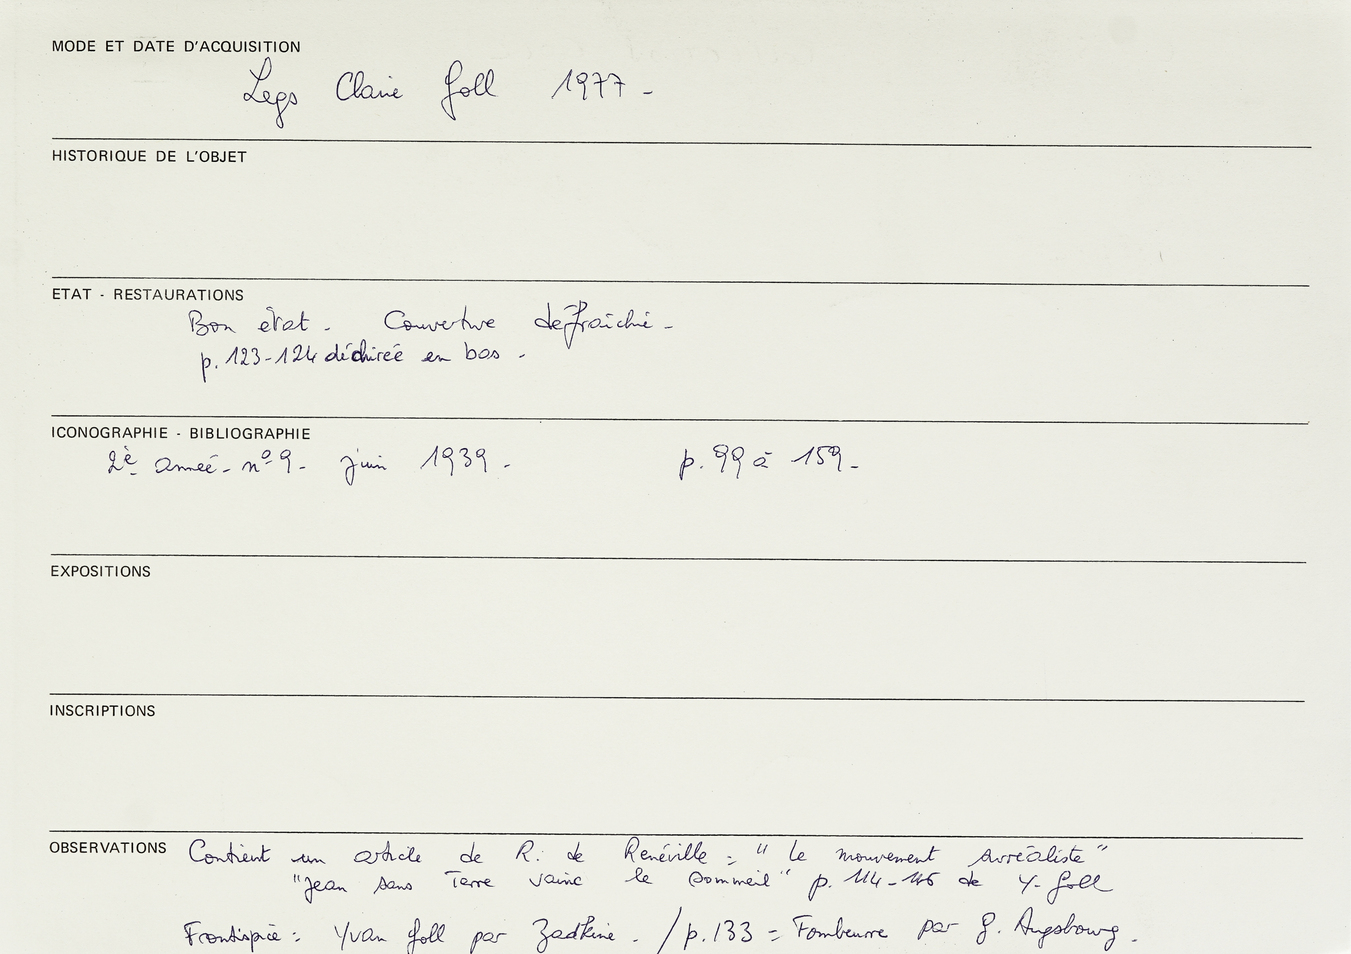 MODE ET DATE D'ACQUISITION
Legs Claire Goll 1977 -
HISTORIQUE DE L'OBJET
ETAT - RESTAURATIONS
Bon état - Couverture defraîchie -
p. 123-124 déchirée en bas -
ICONOGRAPHIE - BIBLIOGRAPHIE
2è année - nº 9 - juin 1939 - p. 99 à 159 -
EXPOSITIONS
INSCRIPTIONS
OBSERVATIONS Contient un article de R. de Renéville = " le mouvement surréaliste"
"Jean sans Terre vainc le sommeil" p. 114- de Y. Goll
Frontispice : Yvan Goll par Zadkine - / p. 133 = Fombeure par G. Augsbourg -